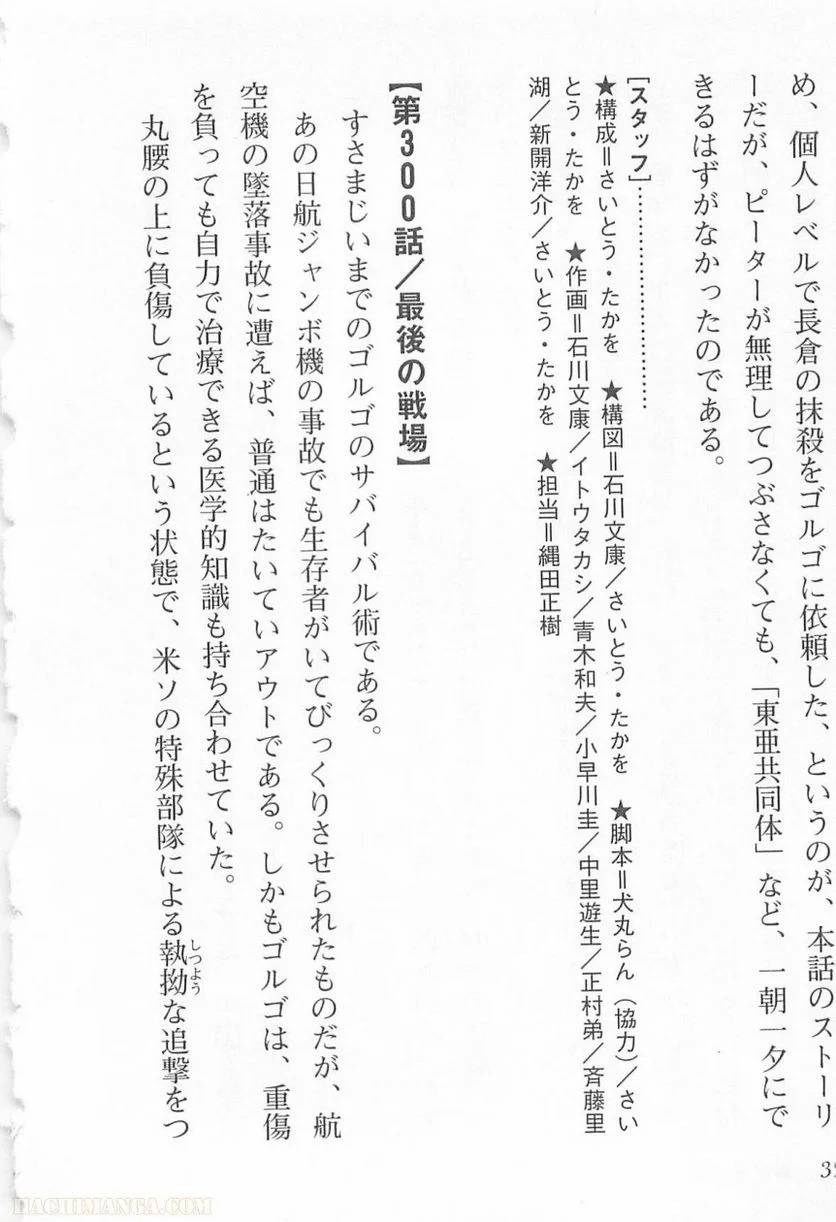 め、個人レベルで長倉の抹殺をゴルゴに依頼した、というのが、本話のストーリ
ーだが、ピーターが無理してつぶさなくても、「東亜共同体」など、一朝一夕にで
きるはずがなかったのである。
[スタッフ]…………………………
★構成＝さいとう・たかを　★構図＝石川文康／さいとう・たかを　★脚本＝犬丸らん（協力）／さい
とう・たかを　★作画＝石川文康／イトウタカシ／青木和夫／小早川圭／中里遊生／正村弟／斉藤里
湖／新開洋介／さいとう・たかを　★担当＝縄田正樹
【第300話／最後の戦場】
すさまじいまでのゴルゴのサバイバル術である。
あの日航ジャンボ機の事故でも生存者がいてびっくりさせられたものだが、航
空機の墜落事故に遭えば、普通はたいていアウトである。しかもゴルゴは、重傷
を負っても自力で治療できる医学的知識も持ち合わせていた。
丸腰の上に負傷しているという状態で、米ソの特殊部隊による執拗な追撃をつ
しつよう
HACHIMANGA.COM